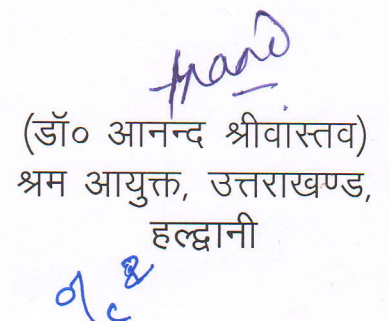 (डॉ० आनन्द श्रीवास्तव)
श्रम आयुक्त, उत्तराखण्ड,
हल्द्वानी